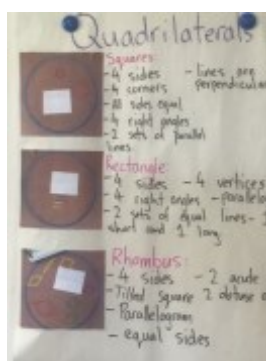 Quadrilaterals
Squares:
- 4 sides - lines are
- 4 corners perpendicular
- All sides equal
- 4 right angles
- 2 sets of parallel
lines
Rectangle:
- 4 sides - 4 vertices
- 4 right angles - parallelo
- 2 sets of equal lines - 2
short and 1 long
Rhombus:
- 4 sides - 2 acute
- Tilted Square 2 obtuse
- Parallelogram
- equal sides